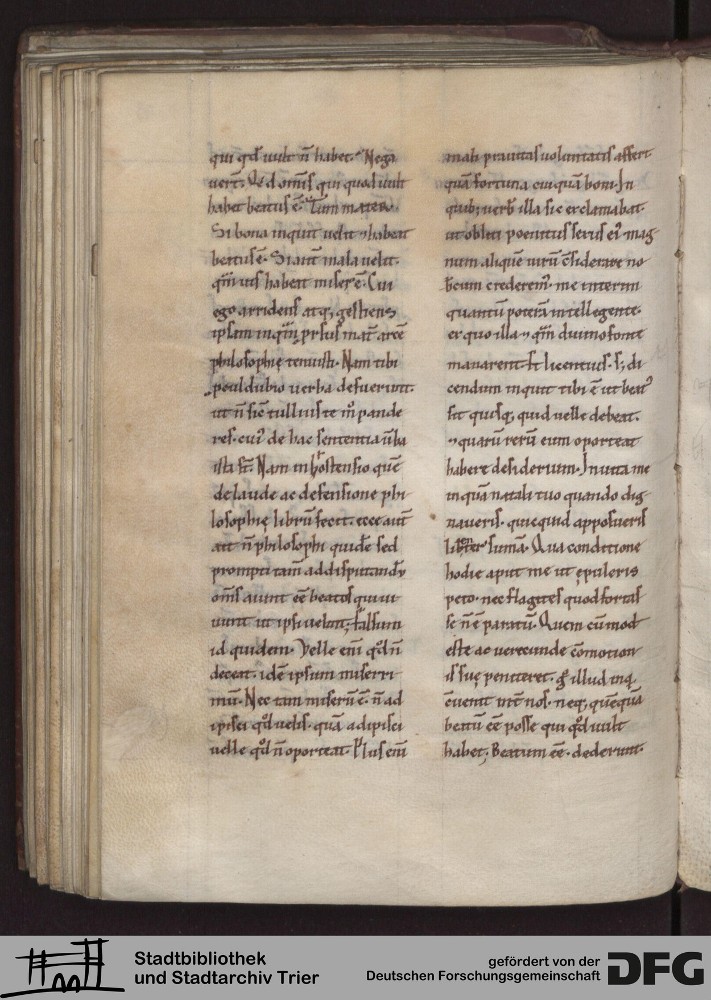 qui qd̄ uult n̄ habet. Nega
uert̄. Qd̄ om̄is qui quod uult
habet beatus ē. Tum mater.
Si bona inquit uelit ⁊ habeat
beatus ē. Si aut̄ mala uelit.
qm̄uis habeat miser ē. Cui
ego arridens atq; gestiens
ipsam inqm̄ prsus mat̄ arcē
philosophię tenuisti. Nam tibi
pculdubio uerba defuerunt.
ut n̄ sic̄ tullius te m̊ pande
res. cui' de hac sententia ūba
ista st̄. Nam in hortensio quē
de laude ac defensione phi
losophię librū fecit. ecce aut̄
ait n̄ philosophi quidē sed
prompti tam̄ ad disputandū
om̄s aiunt eē beatos qui ui
uunt ut ipsi uelint; falsum
id quidem. Velle eni̅ qd̄ n̄
deceat. idē ipsum miserri
mū. Nec tam miserū ē. n̄ ad
ipisci qd̄ uelis. quā adipisci
uelle qd̄ n̄ oporteat. Plus eni̅
mali prauitas uoluntatis affert.
quā fortuna cuiquā boni. In
quib; uerb̄ illa sic exclamabat.
ut obliti poenitus sexus ei' mag
num aliquē uirū c̄siderare no
bcum crederem'. me interim
quantū poterā intellegente.
ex quo illa ⁊ qm̄ diuino fonte
manarent. Et licentius. s; di
cendum inquit tibi ē ut beat'
sit quisq; quid uelle debeat.
⁊ quarū rerū eum oporteat
habere desiderium. Inuita me
inquā natali tuo quando dig
naueris. quicquid apposueris
libter sumā. Qua conditione
hodie aput me ut epuleris
peto. nec flagites quod fortas
se n̄ ē paratū. Quem cū mod
este ac uerecunde cōmotion
is suę peniteret. g̊ illud inq̄
cuenit int̄ nos. neq; quēquā
beatū eē posse qui qd̄ uult
habet; Beatum eē. dederunt.
Stadtbibliothek
und Stadtarchiv Trier
gefördert von der
Deutschen Forschungsgemeinschaft
DFG